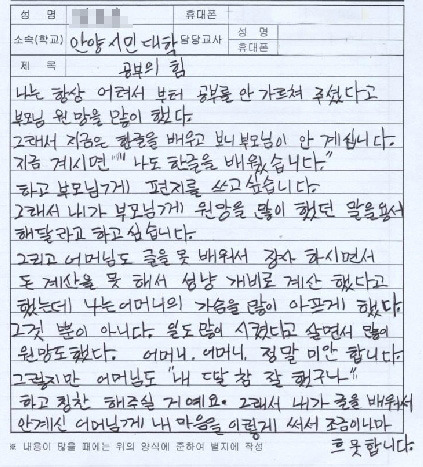 성 명 휴대폰
소속(학교) 안양시민대학 담당교사 성 명
휴대폰
제 목 공부의 힘
나는 항상 어려서 부터 공부를 안 가르쳐 주셨다고
부모님 원망을 많이 했다.
그래서 지금은 한글을 배우고 보니 부모님이 안 계십니다.
지금 계시면 "나도 한글을 배웠습니다."
하고 부모님게 편지를 쓰고싶습니다.
그래서 내가 부모님게 원망을 많이 했던 말을용서
해달라고 하고 싶습니다.
그리고 어머님도 글을 못 배워서 장사 하시면서
돈 계산을 못 해서 성냥 개비로 계산 했다고
했는데 나는 어머니의 가슴을 많이 아프게 했다.
그것 뿐이 아니다. 일도 많이 시켰다고 살면서 많이
원망도했다. 어머니, 어머니, 정말 미안 합니다.
그렇지만 어머님도 "내 딸 참 잘 했구나"
하고 칭찬 해주실 거예요. 그래서 내가 글을 배워서
안계신 어머님게 내 마음을 이렇게 써서 조금이나마
흐뭇합니다.
※ 내용이 많을 때에는 위의 양식에 준하여 별지에 작성